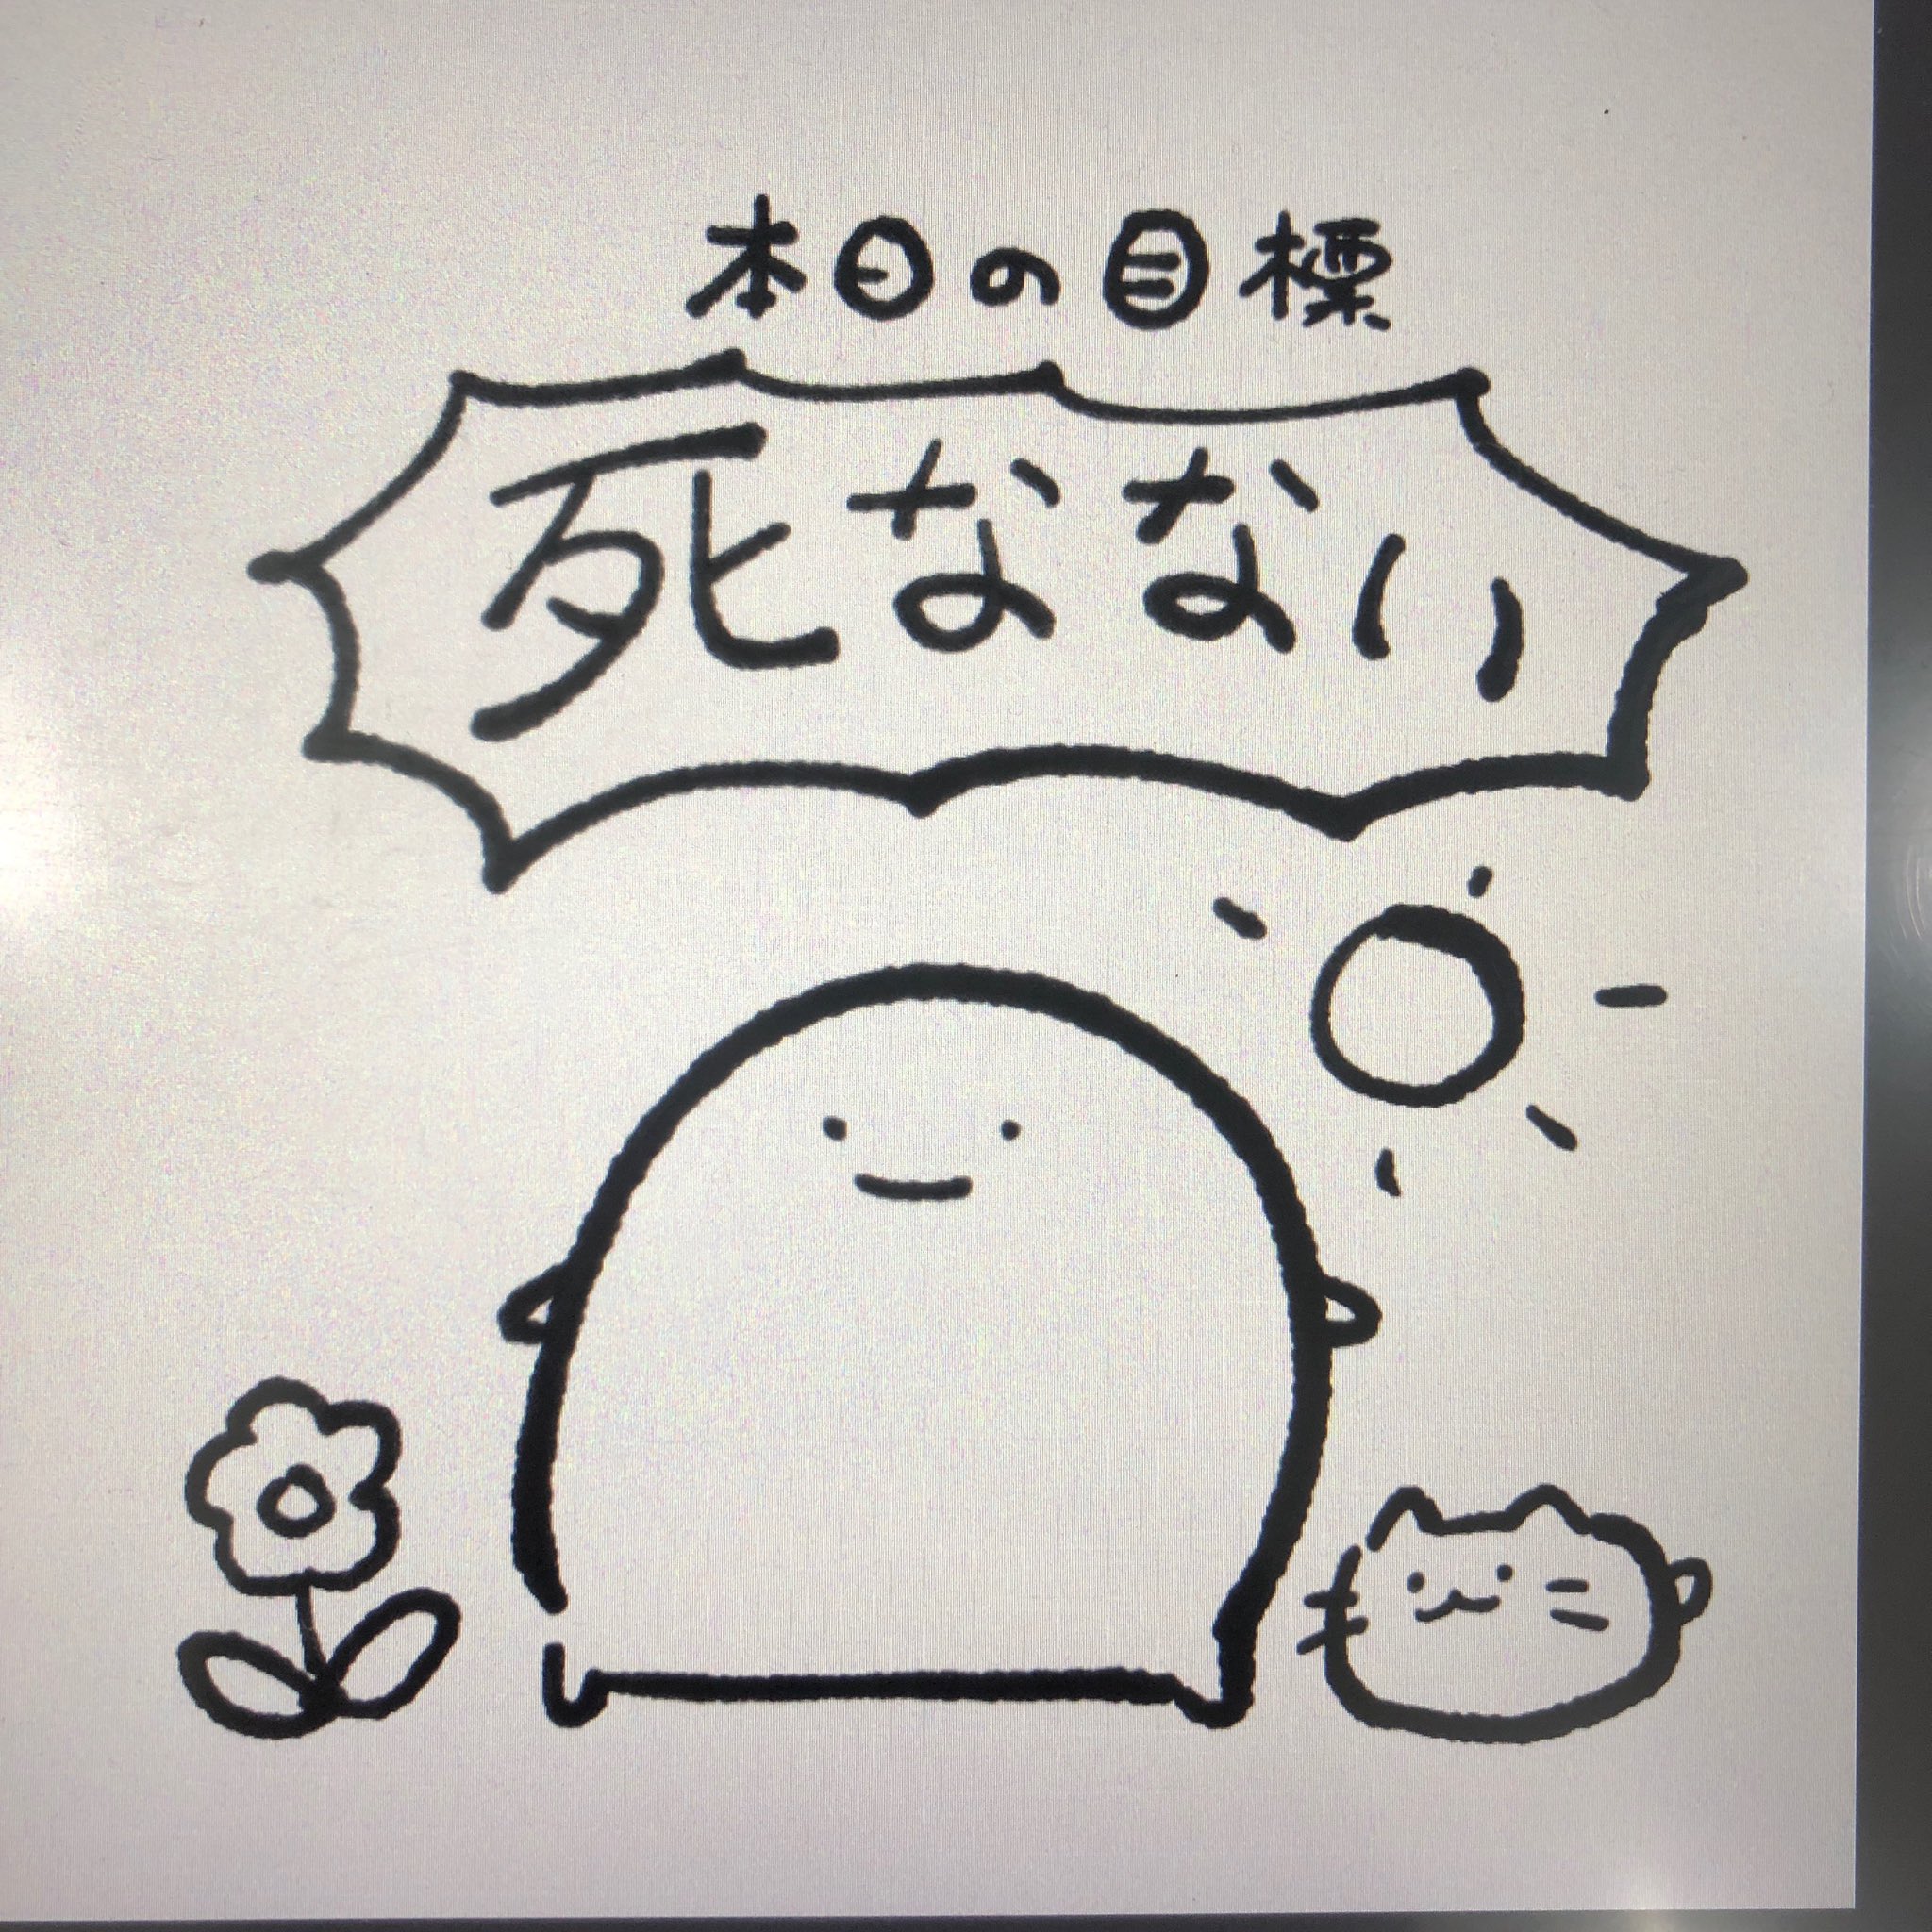 本日の目標
死なない